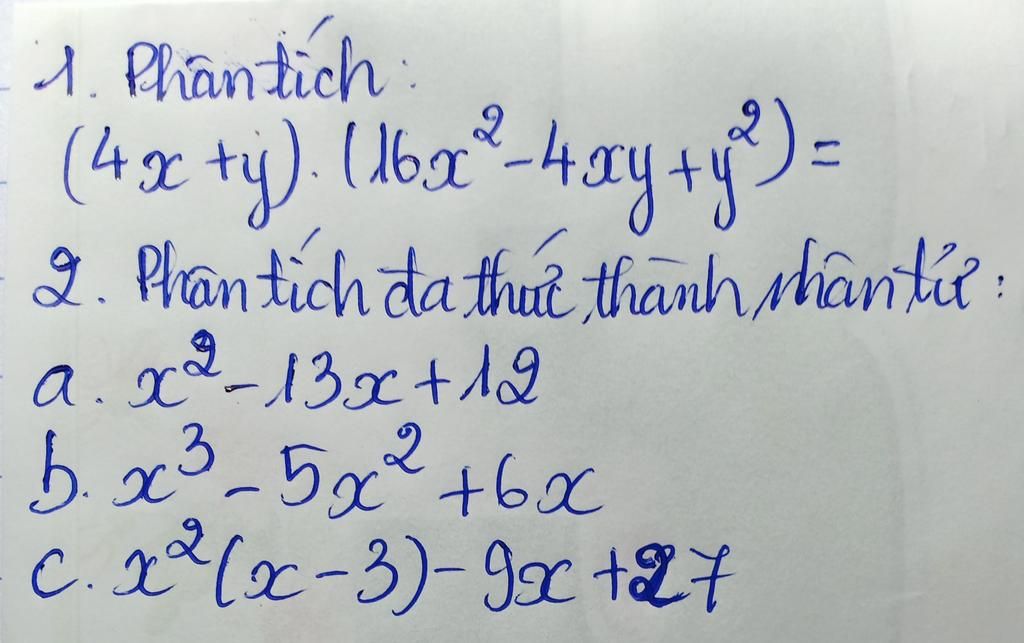 1. Phân tích:
(4x + y). (16x² - 4xy + y²) =
2. Phân tích đa thức, thành, nhân tử:
a. x² - 13x + 12
b. x³ - 5x² + 6x
c. x²(x - 3) - 9x + 27